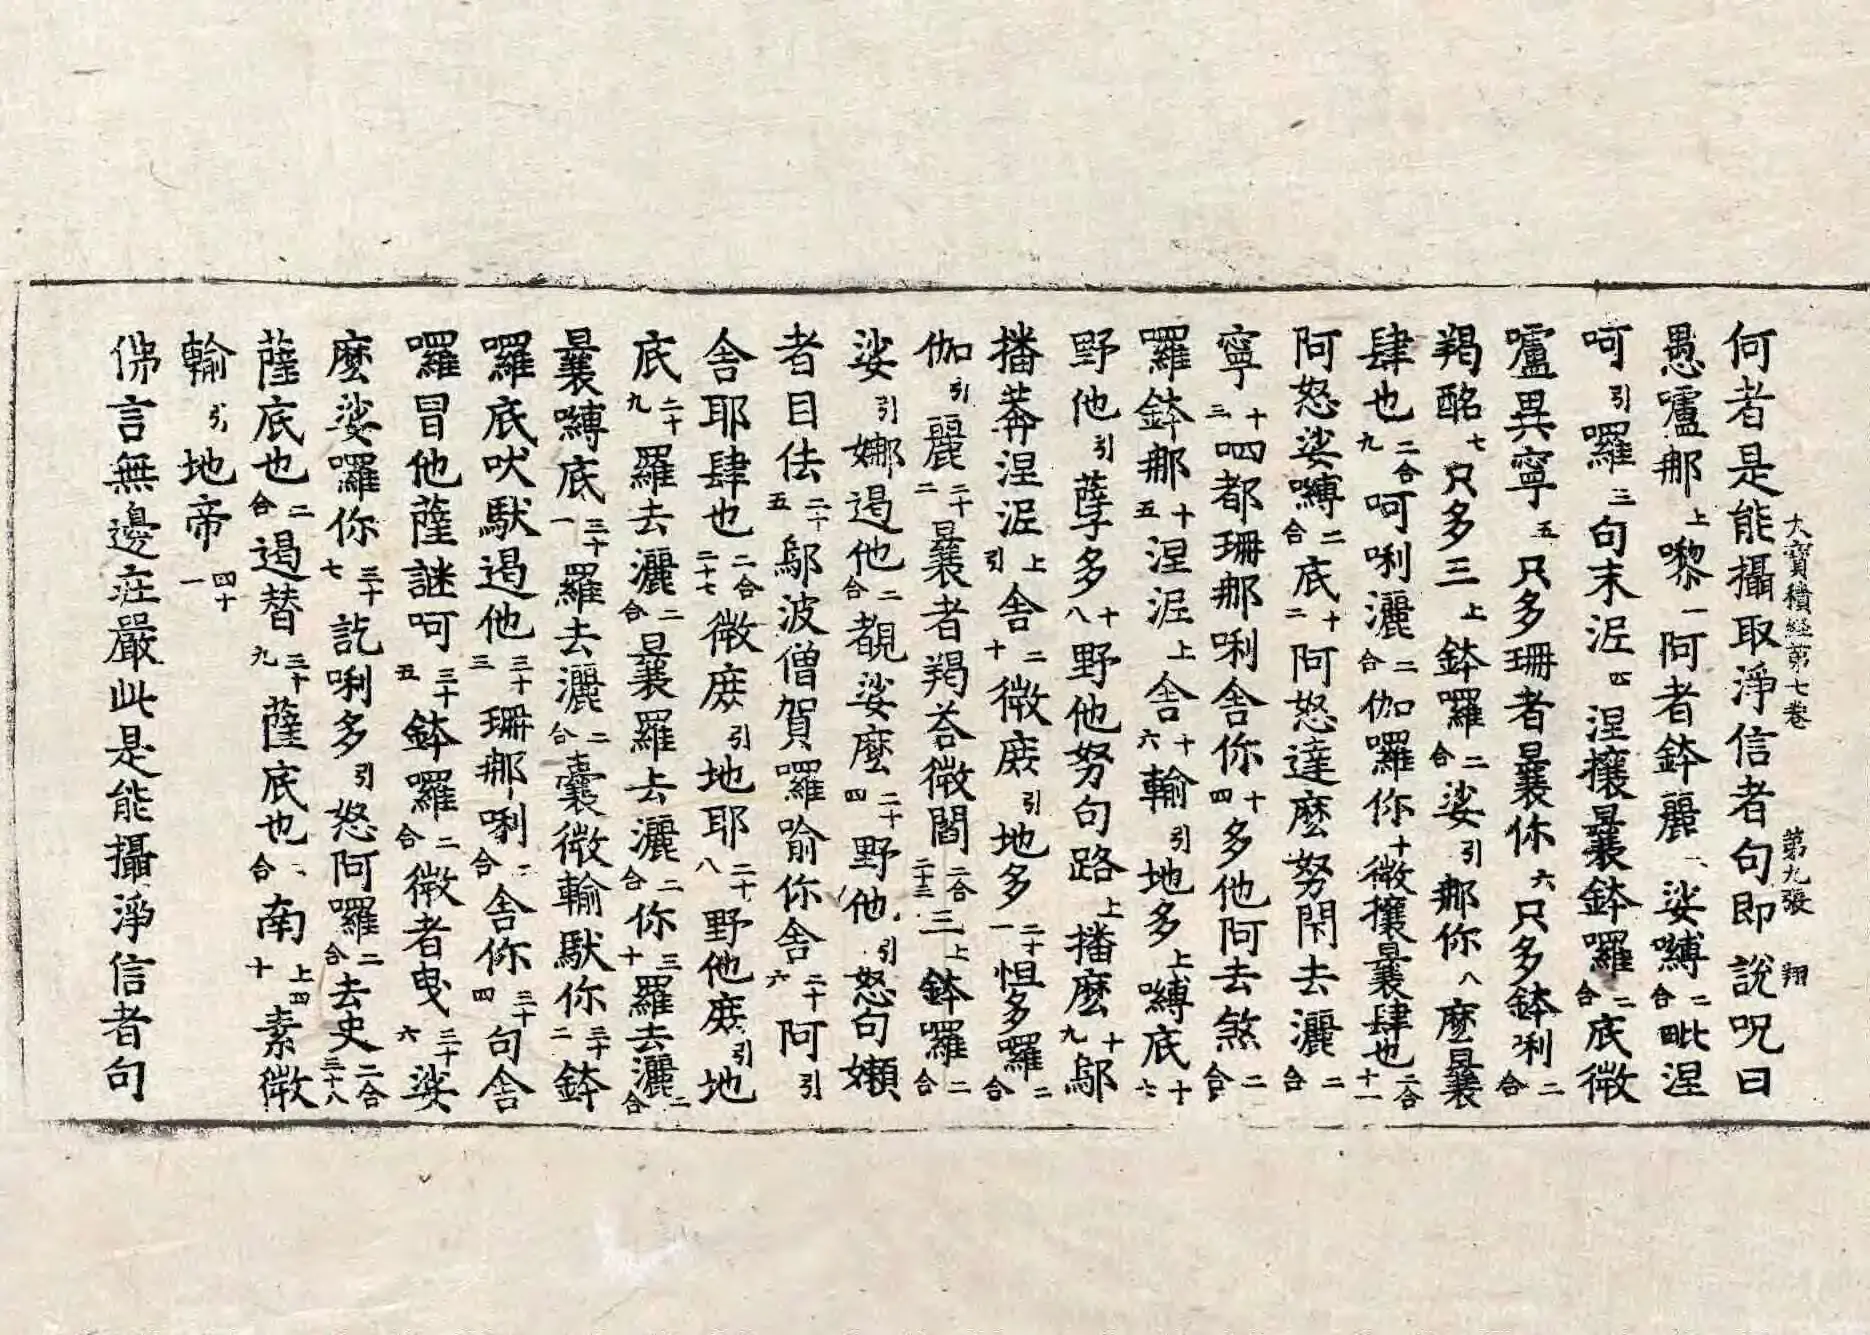 大寶積經第七卷 第九張 翔
何者是能攝取淨信者句即說呪曰
愚嚧那上嚟一阿者鉢麗二娑嚩二合毗涅
呵引囉三句末泥四涅攘曩鉢囉二合底微
嚧異寧五只多珊者曩你六只多鉢唎二合
羯酩七只多三上鉢囉二合娑引那你八麼曩
肆也二合九呵唎灑二合伽囉你十微攘曩肆也二合十一
阿怒娑嚩二合底十二阿怒達麼努閇去灑二合
寧十三呬都珊那唎舍你十四多他阿去煞二合
羅鉢那十五涅泥上舍十六輸引地多上嚩底十七
野他引孽多十八野他努句路上播麼十九鄔
播莽涅泥上引舍二十微庾引地多二十一怛多囉二合
伽引麗二十二曩者羯荅微閻二合二十三三上鉢囉二合
娑引娜遏他二合覩娑麼二十四野他引怒句嬾
者目佉二十五鄔波僧賀囉喻你舍二十六阿引
舍耶肆也二合二十七微庾引地耶二十八野他庾引地
底二十九羅去灑二合曩羅去灑二合你三十羅去灑二合
曩嚩底三十一羅去灑二合囊微輸馱你三十二鉢
囉底吠馱遏他三十三珊那唎二合舍你三十四句舍
囉冒他薩謎呵三十五鉢囉二合微者曳三十六娑
麼娑囉你三十七訖唎多引怒阿囉二合去史二合三十八
薩底也二合遏替三十九薩底也二合南上四十素微
輸引地帝四十一
佛言無邊莊嚴此是能攝淨信者句